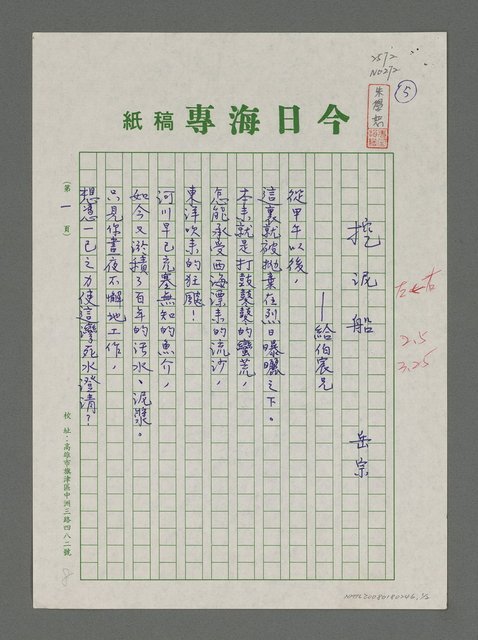 2572
NO272
5
朱學恕
今日海專稿紙
挖泥船
岳宗
——給伯宸兄
從甲午以後，
這裏就被拋棄在烈日曝曬之下。
本來就是打鼓鼕鼕的蠻荒，
怎能承受西海漂來的流沙，
東洋吹來的狂颶！
河川早已充塞無知的魚介，
如今又淤積了百年的污水、泥漿。
只見你晝夜不懈地工作，
想憑一己之力使這灣死水澄清？
左←右
2.5
3.25
(第一頁)
校址：高雄市旗津區中洲三路四八二號
8
NMTL20080180246,1/2